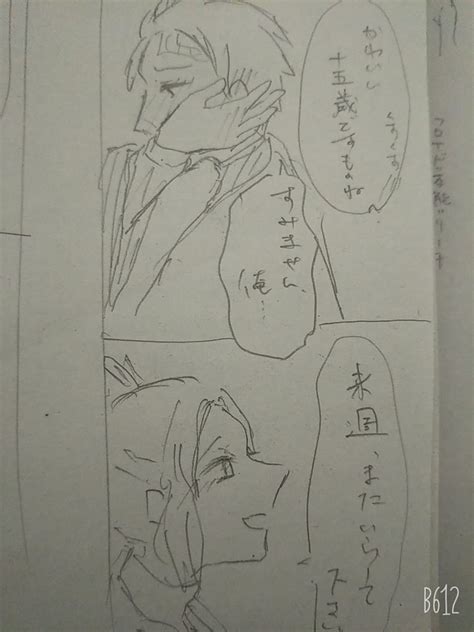 かわいい
十五歳ですものね
くすくす
すみません
俺…
来週、またいらして
下さい
B612